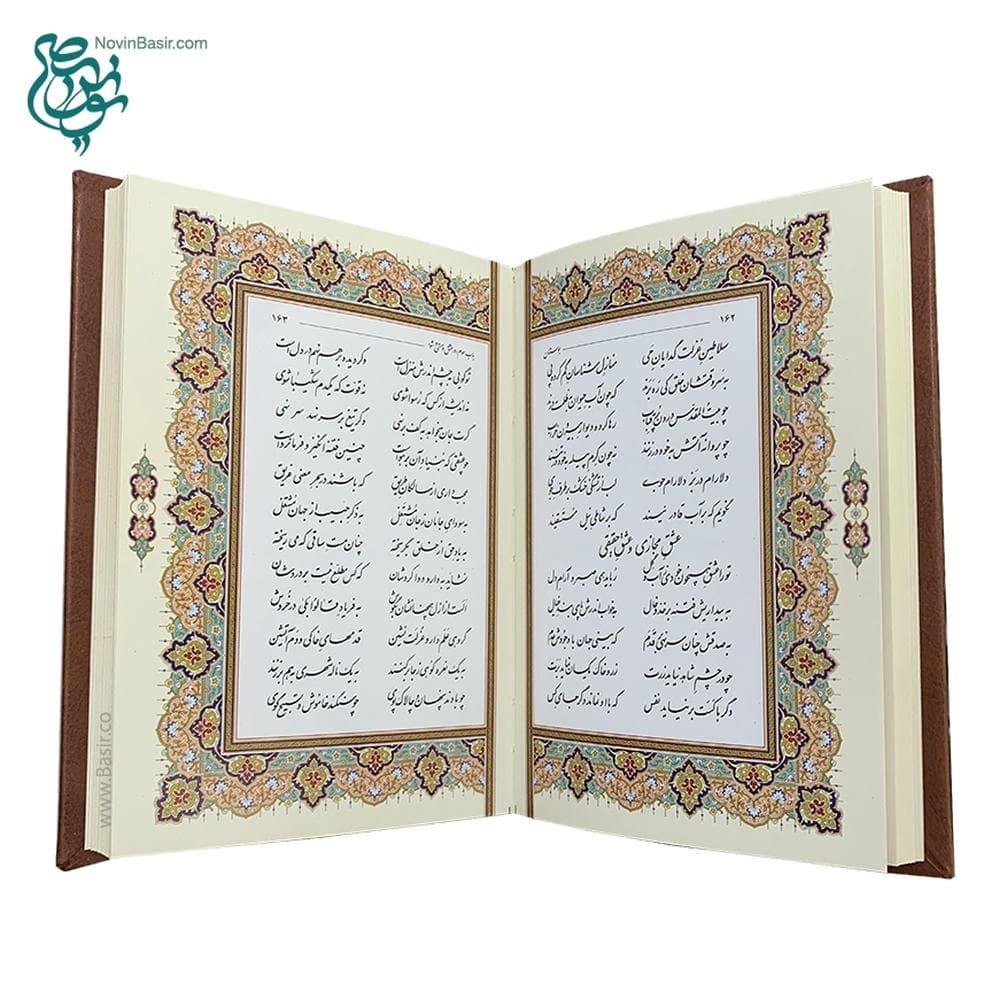 NovinBasir.com
نوین بصیر
۱۶۲ بوستان
سلاطین عزلت گدایان حی منازل شناسان گم کرده پی
به سر وقتشان خلق کی ره برند که چون آب حیوان به ظلمت درند
چو بیت‌المقدس درون پر قباب رها کرده دیوار بیرون خراب
چو پروانه آتش به خود در زنند نه چون کرم پیله به خود برتنند
دلارام در بر دلارام جوی لب از تشنگی خشک بر طرف جوی
نگویم که بر آب قادر نیند که بر شاطی نیل مستسقیند
عشق مجازی و عشق حقیقی
تو را عشق همچون خودی ز آب و گل رباید همی صبر و آرام دل
به بیداریش فتنه بر خد و خال به خواب اندرش پای بند خیال
به صدقش چنان سر نهی بر قدم که بینی جهان با وجودش عدم
چو در چشم شاهد نیاید زرت زر و خاک یکسان نماید برت
دگر با کست بر نیاید نفس که با او نماند دگر جای کس
باب سوم در عشق و مستی و شور ۱۶۳
تو گویی به چشم اندرش منزل است وگر دیده بر هم نهی در دل است
نه اندیشه از کس که رسوا شوی نه قوت که یک دم شکیبا شوی
گرت جان بخواهد به کف بر نهی وگر تیغ بر سر نهد سر نهی
چو عشقی که بنیاد آن بر هواست چنین فتنه انگیز و فرمانرواست
عجب داری از سالکان طریق که باشند در بحر معنی غریق
به سودای جانان ز جان مشتغل به ذکر حبیب از جهان مشتغل
به یاد حق از خلق بگریخته چنان مست ساقی که می ریخته
نشاید به دارو دوا کردشان که کس مطلع نیست بر دردشان
الست از ازل همچنانشان به گوش به فریاد قالوا بلی در خروش
گروهی عمل دار و عزلت نشین قدمهای خاکی و دم آتشین
به یک نعره کوهی ز جا برکنند به یک ناله شهری به هم برزنند
چو بادند پنهان و چالاک پوی چو سنگند خاموش و تسبیح گوی
www.Basir.co